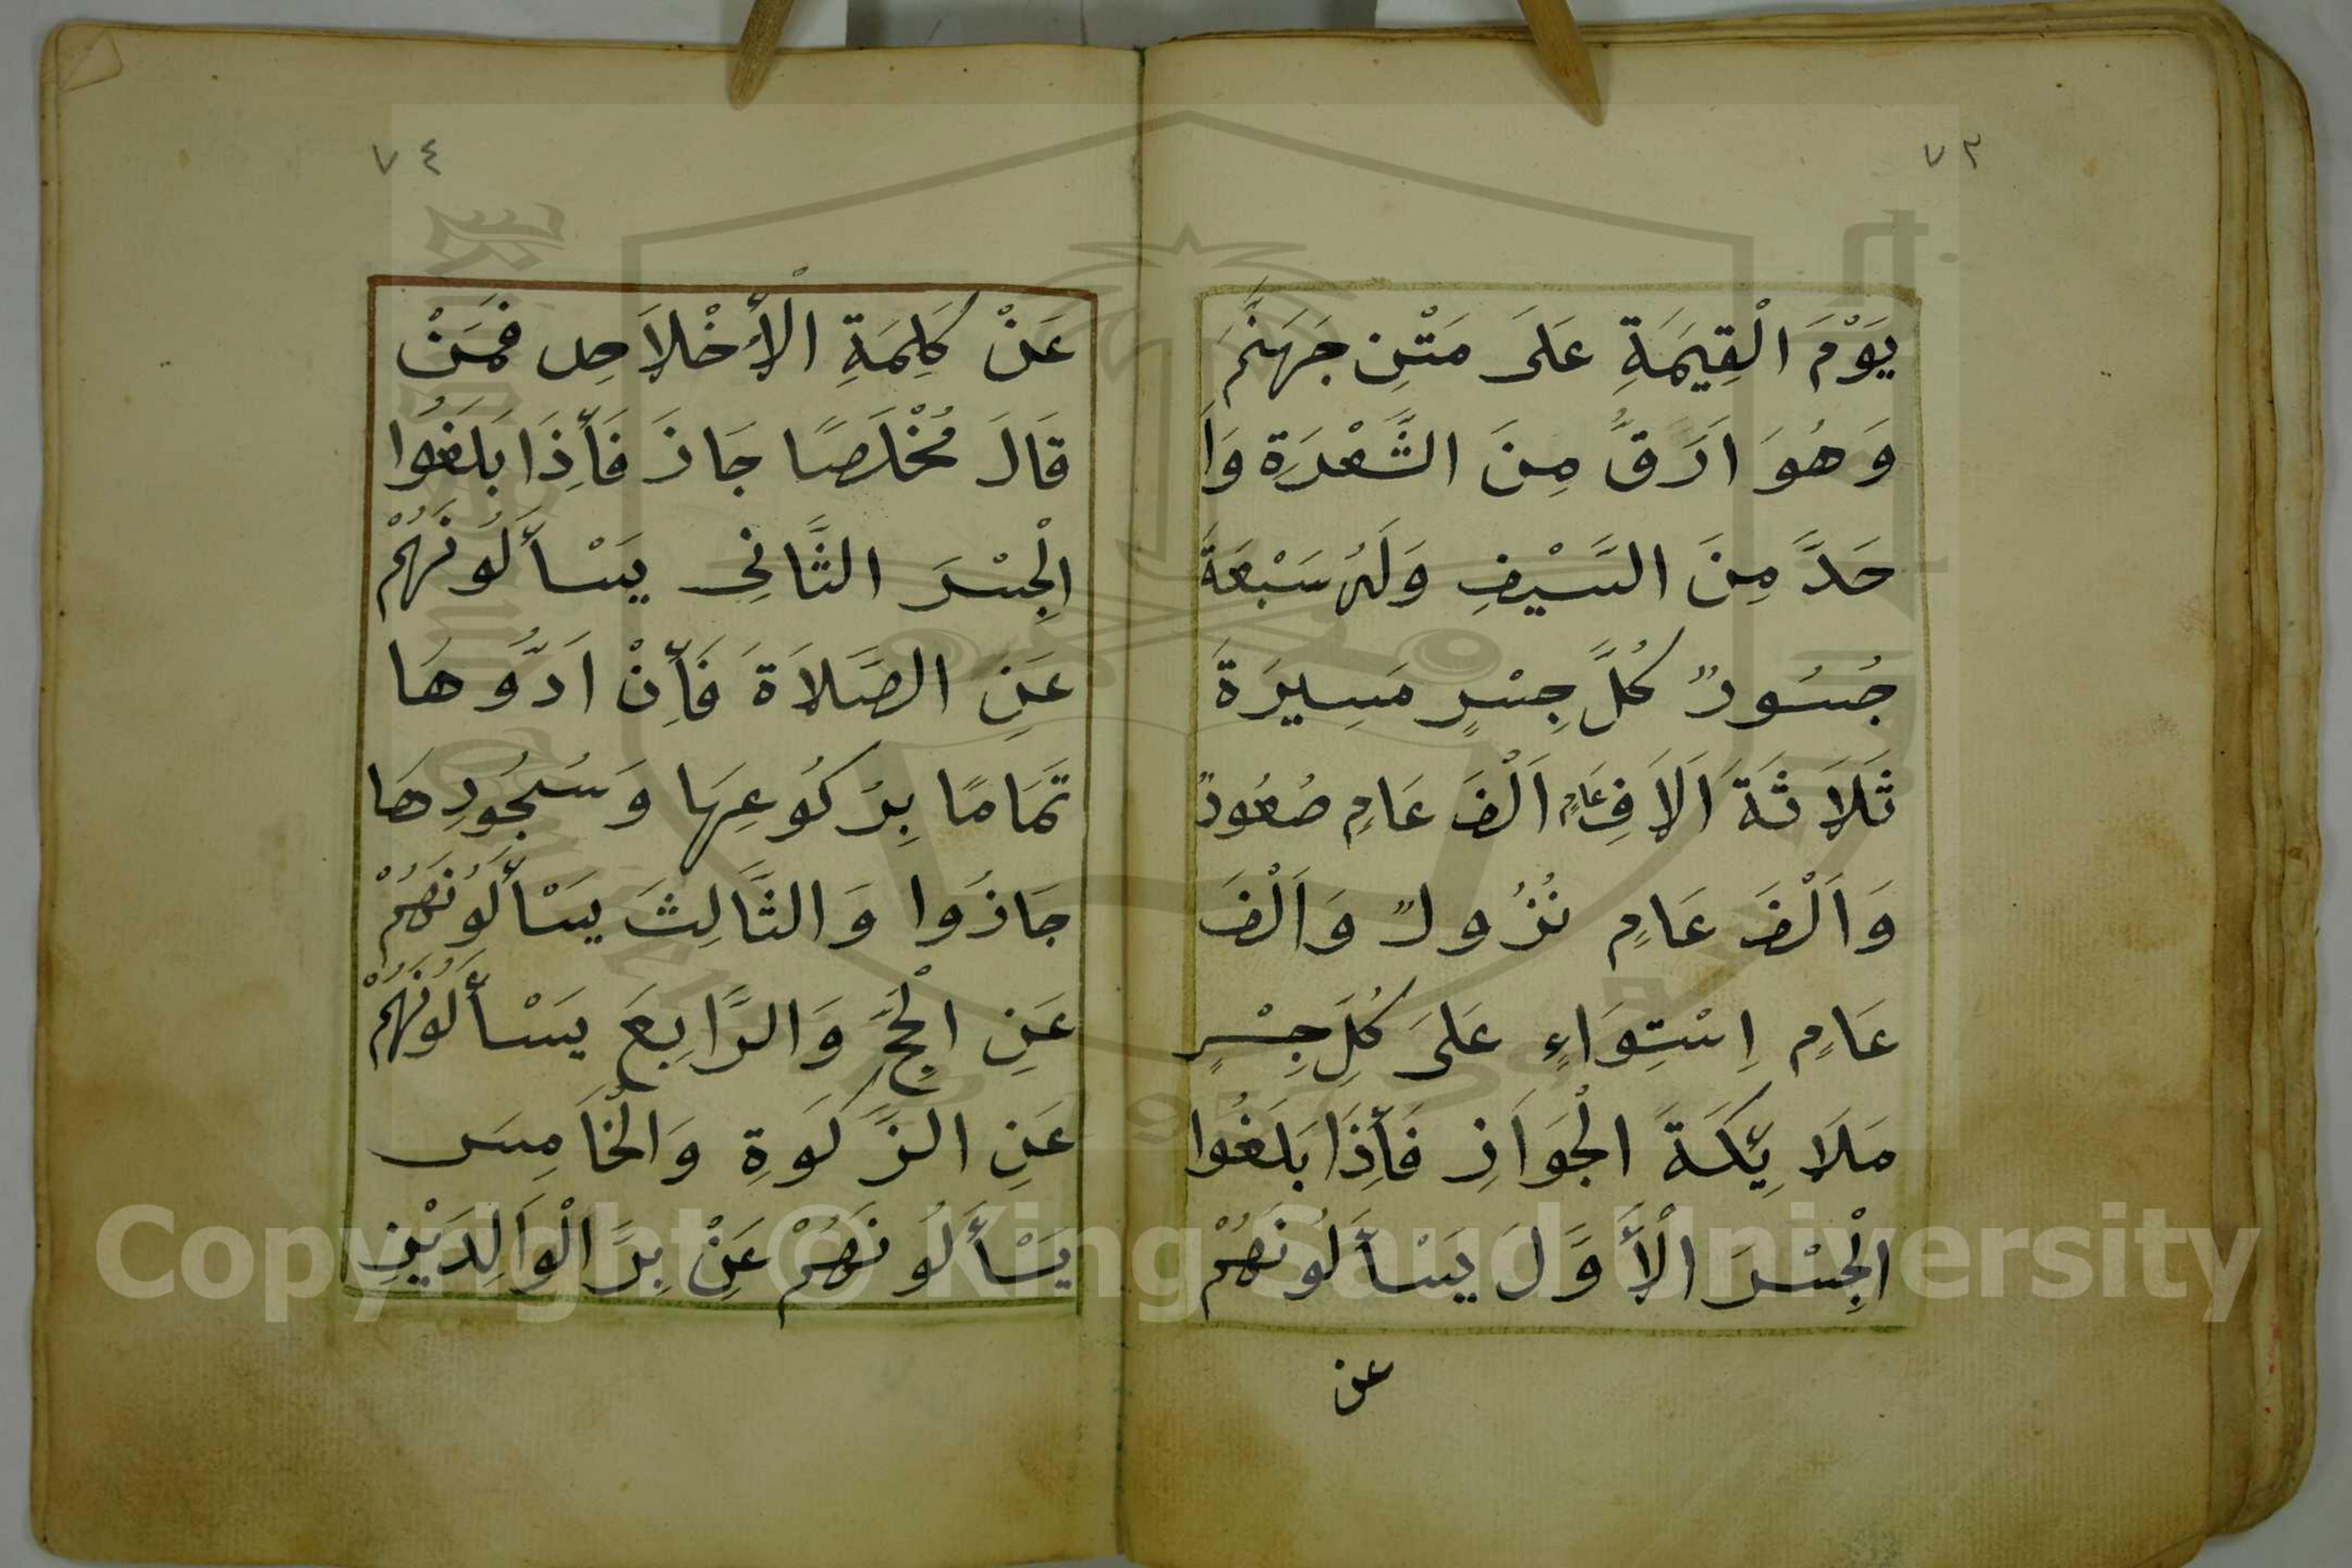 ٧٣
يَوْمَ الْقِيَمَةِ عَلَى مَتْنِ جَهَنَّمَ
وَهُوَ اَرَقُّ مِنَ الشَّعْرَةِ وَاَ
حَدَّ مِنَ السَّيْفِ وَلَهُ سَبْعَةَ
جُسُورٌ كُلَّ جِسْرٍ مَسِيرَةَ
ثَلَاثَةَ اَلَافِ عَامٍ اَلْفَ عَامٍ صُعُودٌ
وَاَلْفَ عَامٍ نُزُولٌ وَاَلْفَ
عَامٍ اِسْتِوَاءٍ عَلَى كُلِّ جِسْرٍ
مَلَائِكَةَ الْجَوَازِ فَأِذَا بَلَغُوا
الْجِسْرَ الْأَوَّلَ يَسْأَلُونَهُمْ
عن
٧٤
عَنْ كَلِمَةِ الْأِخْلَاصِ فَمَنْ
قَالَ مُخْلَصًا جَازَ فَأِذَا بَلَغُوا
الْجِسْرَ الثَّانِي يَسْأَلُونَهُمْ
عَنِ الصَّلَاةَ فَأِنْ اَدُّوهَا
تَمَامًا بِرُكُوعِهَا وَسُجُودِهَا
جَازُوا وَالثَّالِثَ يَسْأَلُونَهُمْ
عَنِ الْحَجِّ وَالرَّابِعَ يَسْأَلُونَهُمْ
عَنِ الزَّكَوةِ وَالْخَامِسَ
يَسْأَلُونَهُمْ عَنْ بِرِّ الْوَالِدَيْنِ
Copyright © King Saud University